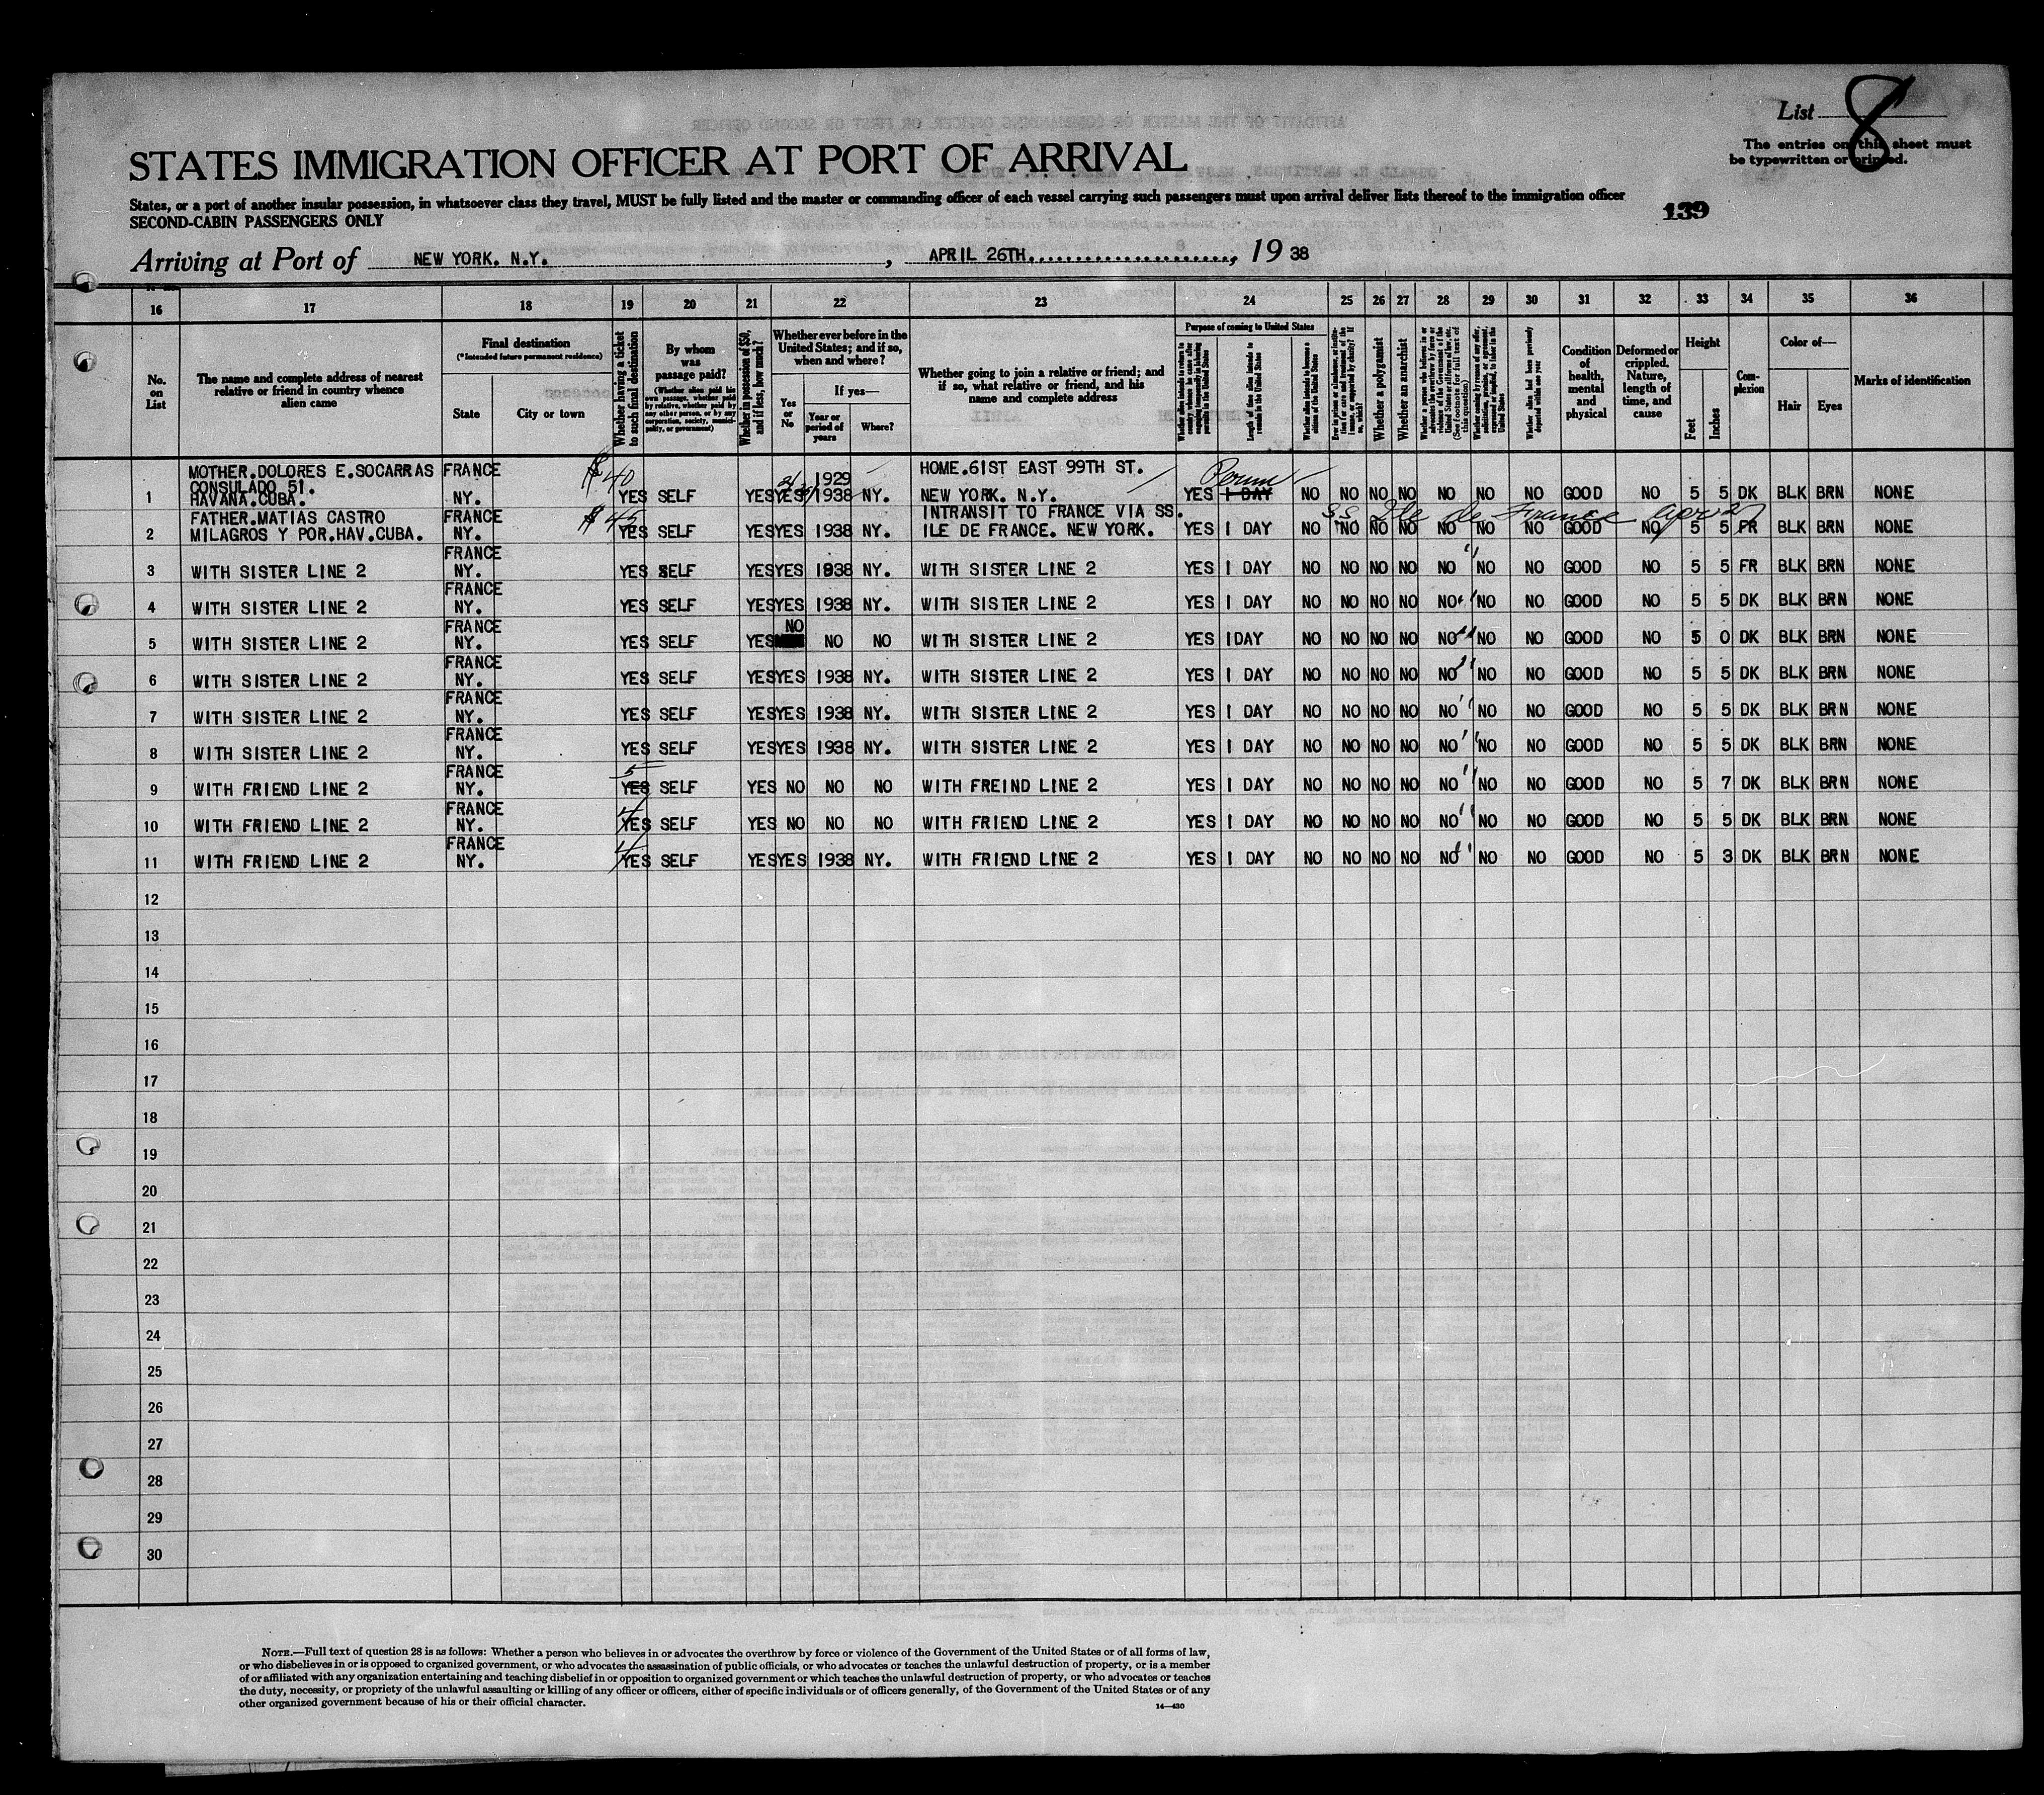 List 8
The entries on this sheet must
be typewritten or printed.
STATES IMMIGRATION OFFICER AT PORT OF ARRIVAL
States, or a port of another insular possession, in whatsoever class they travel, MUST be fully listed and the master or commanding officer of each vessel carrying such passengers must upon arrival deliver lists thereof to the immigration officer
SECOND-CABIN PASSENGERS ONLY
139
Arriving at Port of NEW YORK. N.Y. , APRIL 26TH , 19 38
16 17 18 19 20 21 22 23 24 25 26 27 28 29 30 31 32 33 34 35 36
No. on List
The name and complete address of nearest relative or friend in country whence alien came
Final destination
(*Intended future permanent residence)
State City or town
Whether having a ticket to such final destination
By whom was passage paid?
(Whether alien paid his own passage, whether paid by relative, whether paid by any other person, or by any corporation, society, municipality, or government)
Whether in possession of $50, and if less, how much?
Whether ever before in the United States; and if so, when and where?
Yes or No
If yes—
Year or period of years
Where?
Whether going to join a relative or friend; and if so, what relative or friend, and his name and complete address
Purpose of coming to United States
Length of time alien intends to remain in the United States
Whether alien intends to become a citizen of the United States
Whether a polygamist
Whether an anarchist
Condition of health, mental and physical
Deformed or crippled. Nature, length of time, and cause
Height
Feet Inches
Complexion
Color of—
Hair Eyes
Marks of identification
MOTHER.DOLORES E.SOCARRAS FRANCE $40 1929 HOME.61ST EAST 99TH ST. Perm
CONSULADO 51.
1 HAVANA.CUBA. NY. YES SELF YES YES 1938 NY. NEW YORK. N.Y. YES 1 DAY NO NO NO NO NO NO NO GOOD NO 5 5 DK BLK BRN NONE
FATHER.MATIAS CASTRO FRANCE $45 INTRANSIT TO FRANCE VIA SS. SS Ile de France apr 27
2 MILAGROS Y POR.HAV.CUBA. NY. YES SELF YES YES 1938 NY. ILE DE FRANCE. NEW YORK. YES 1 DAY NO NO NO NO NO NO NO GOOD NO 5 5 FR BLK BRN NONE
FRANCE
3 WITH SISTER LINE 2 NY. YES SELF YES YES 1938 NY. WITH SISTER LINE 2 YES 1 DAY NO NO NO NO NO NO NO GOOD NO 5 5 FR BLK BRN NONE
FRANCE
4 WITH SISTER LINE 2 NY. YES SELF YES YES 1938 NY. WITH SISTER LINE 2 YES 1 DAY NO NO NO NO NO NO NO GOOD NO 5 5 DK BLK BRN NONE
FRANCE NO
5 WITH SISTER LINE 2 NY. YES SELF YES NO NO WITH SISTER LINE 2 YES 1DAY NO NO NO NO NO NO NO GOOD NO 5 0 DK BLK BRN NONE
FRANCE
6 WITH SISTER LINE 2 NY. YES SELF YES YES 1938 NY. WITH SISTER LINE 2 YES 1 DAY NO NO NO NO NO NO NO GOOD NO 5 5 DK BLK BRN NONE
FRANCE
7 WITH SISTER LINE 2 NY. YES SELF YES YES 1938 NY. WITH SISTER LINE 2 YES 1 DAY NO NO NO NO NO NO NO GOOD NO 5 5 DK BLK BRN NONE
FRANCE
8 WITH SISTER LINE 2 NY. YES SELF YES YES 1938 NY. WITH SISTER LINE 2 YES 1 DAY NO NO NO NO NO NO NO GOOD NO 5 5 DK BLK BRN NONE
FRANCE 5
9 WITH FRIEND LINE 2 NY. YES SELF YES NO NO NO WITH FREIND LINE 2 YES 1 DAY NO NO NO NO NO NO NO GOOD NO 5 7 DK BLK BRN NONE
FRANCE
10 WITH FRIEND LINE 2 NY. YES SELF YES NO NO NO WITH FRIEND LINE 2 YES 1 DAY NO NO NO NO NO NO NO GOOD NO 5 5 DK BLK BRN NONE
FRANCE
11 WITH FRIEND LINE 2 NY. YES SELF YES YES 1938 NY. WITH FRIEND LINE 2 YES 1 DAY NO NO NO NO NO NO NO GOOD NO 5 3 DK BLK BRN NONE
12
13
14
15
16
17
18
19
20
21
22
23
24
25
26
27
28
29
30
NOTE.—Full text of question 28 is as follows: Whether a person who believes in or advocates the overthrow by force or violence of the Government of the United States or of all forms of law,
or who disbelieves in or is opposed to organized government, or who advocates the assassination of public officials, or who advocates or teaches the unlawful destruction of property, or is a member
of or affiliated with any organization entertaining and teaching disbelief in or opposition to organized government or which teaches the unlawful destruction of property, or who advocates or teaches
the duty, necessity, or propriety of the unlawful assaulting or killing of any officer or officers, either of specific individuals or of officers generally, of the Government of the United States or of any
other organized government because of his or their official character.
14—430